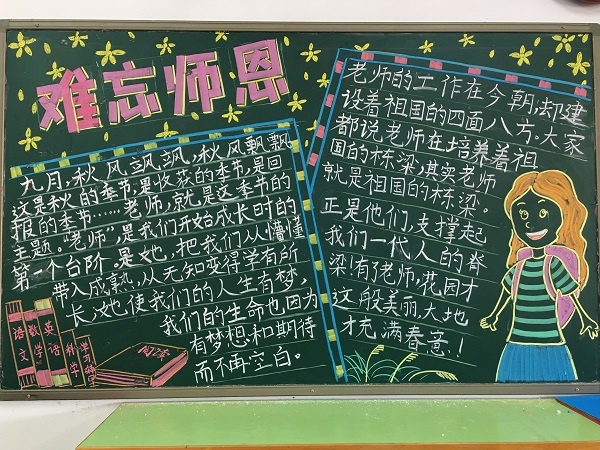 难忘师恩
九月,秋风飒飒,秋风飘飘
这是秋的季节,是收获的季节,是回
报的季节……老师,就是这季节的
主题。“老师”,是我们开始成长时的
第一个台阶,是她,把我们从懵懂
带入成熟,从无知变得学有所
长;她使我们的人生有梦,
我们的生命也因为
有梦想和期待
而不再空白。
老师的工作在今朝,却建
设着祖国的四面八方。大家
都说老师在培养着祖
国的栋梁,其实老师
就是祖国的栋梁。
正是他们,支撑起
我们一代人的脊
梁!有了老师,花园才
这般美丽,大地
才充满春意!
语文
数学
英语
科学
阅读